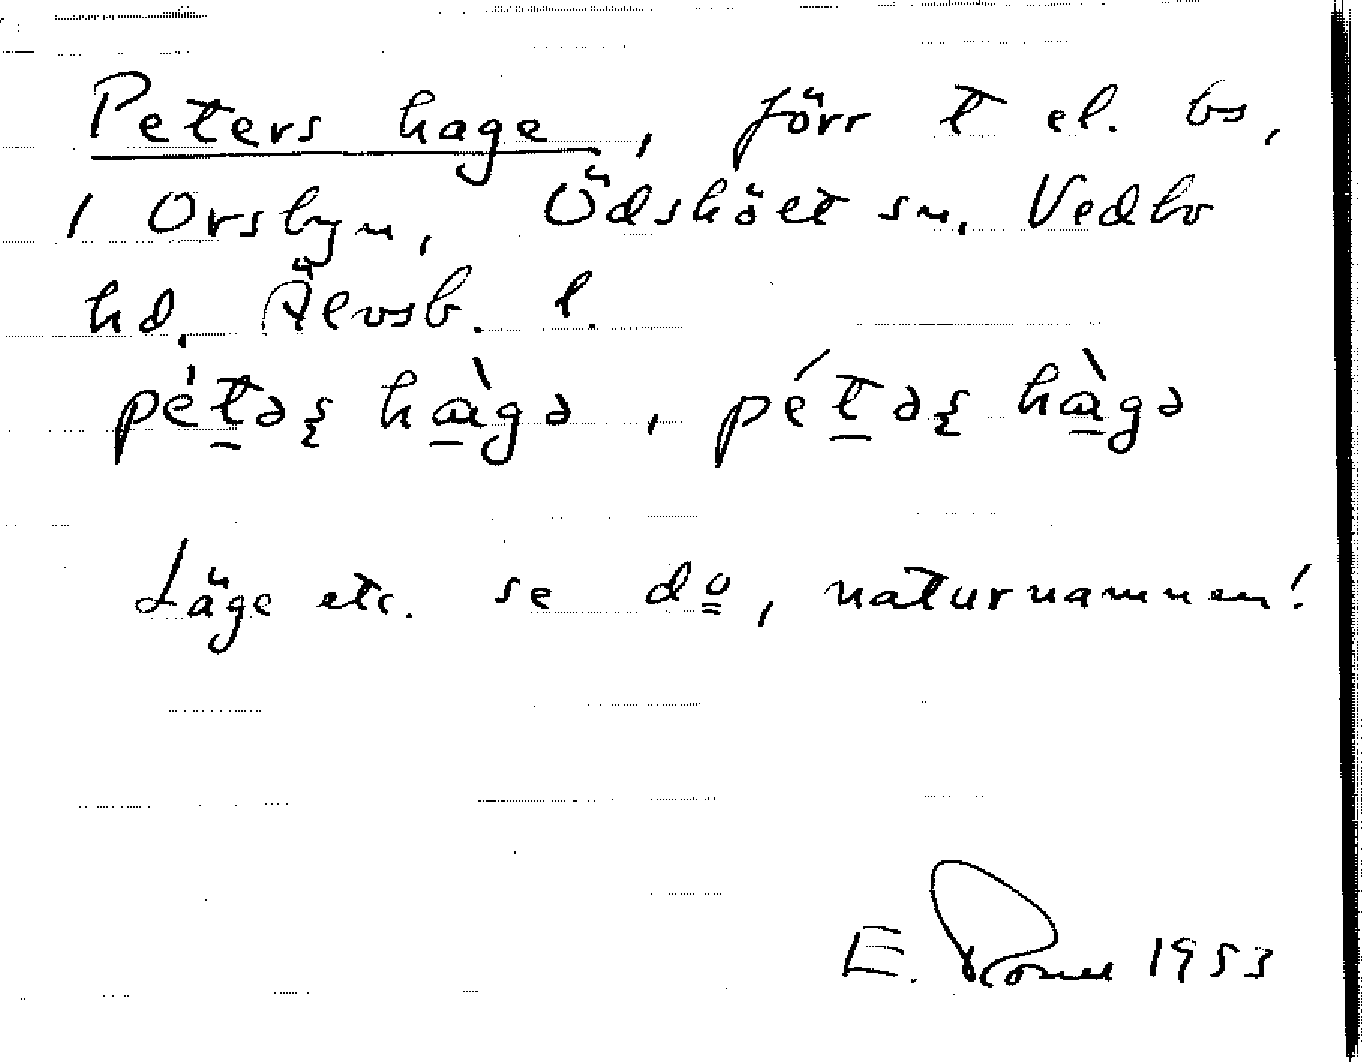 Peters hage, förr t el. bs,
i Orsbyn, Ödskölt sn. Vedbo
hd. Älvsb. l.
pétəʂ hàgə, pétəʂ hàgə
Läge etc. se dº, naturnamnen!
E. 1953